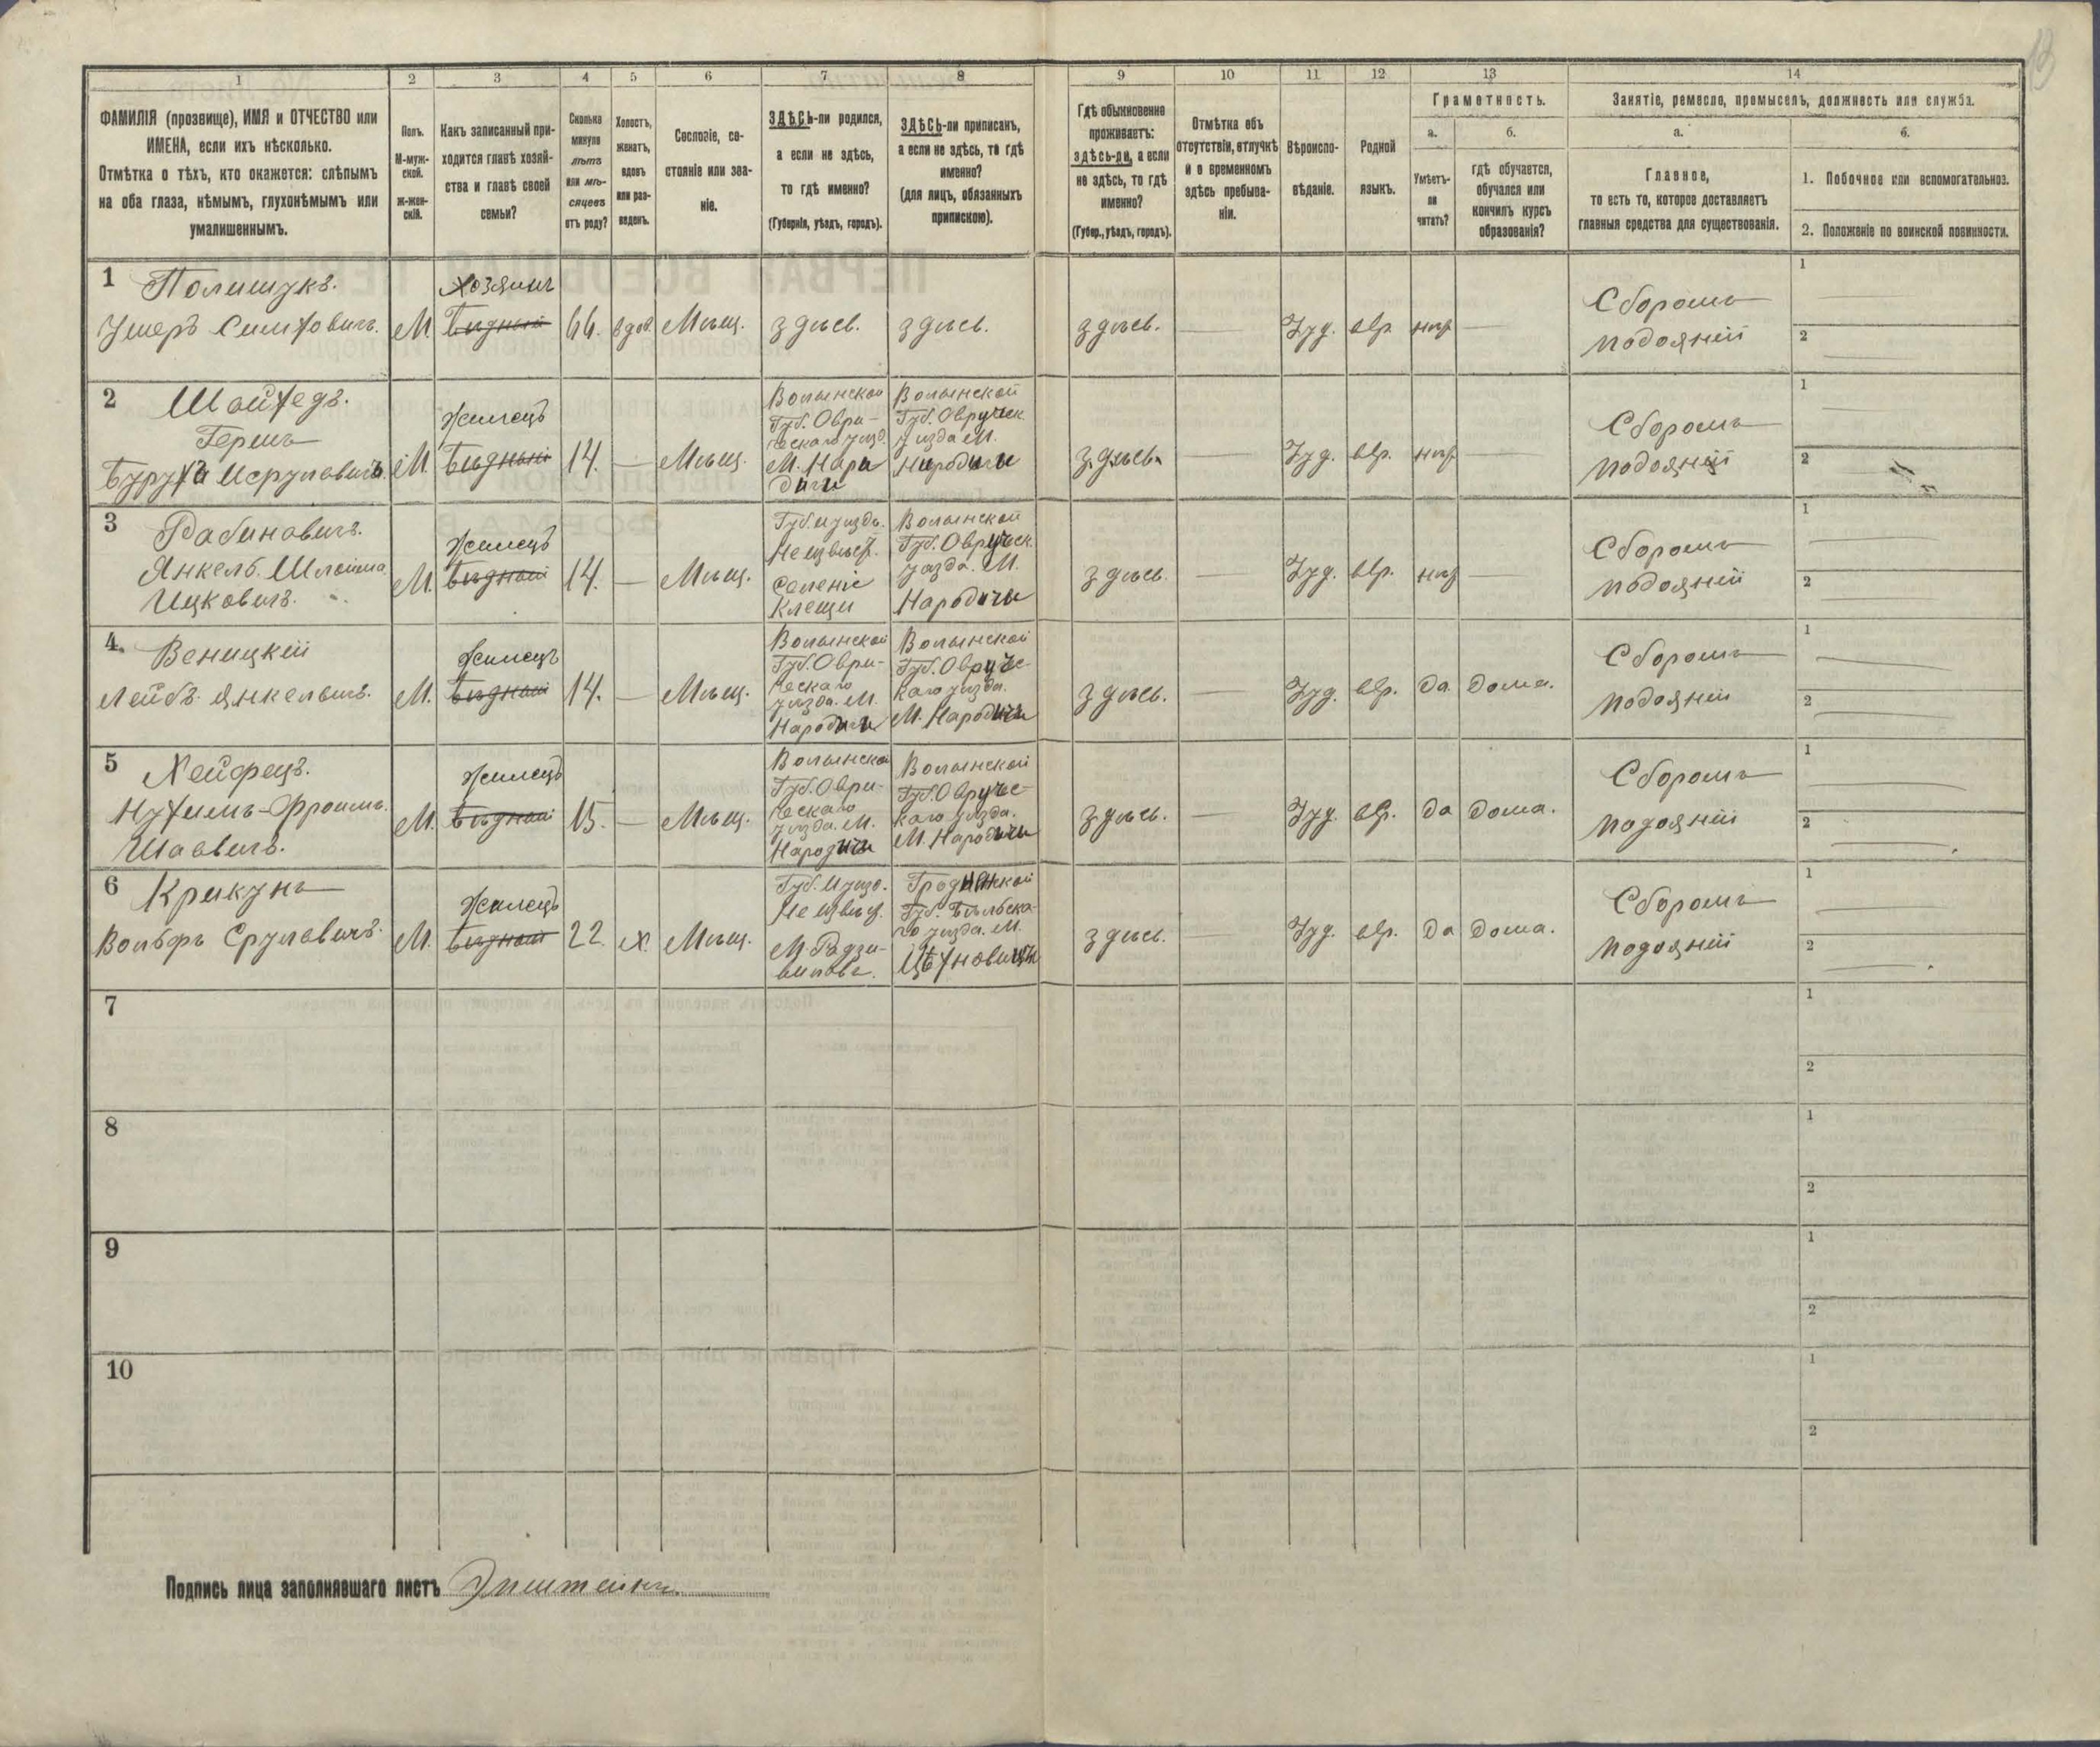 13
1
2
3
4
5
6
7
8
9
10
11
12
13
14
ФАМИЛІЯ (прозвище), ИМЯ и ОТЧЕСТВО или
ИМЕНА, если ихъ нѣсколько.
Отмѣтка о тѣхъ, кто окажется: слѣпымъ
на оба глаза, нѣмымъ, глухонѣмымъ или
умалишеннымъ.
Полъ.
М-муж-
ской.
Ж-жен-
скій.
Какъ записанный при-
ходится главѣ хозяй-
ства и главѣ своей
семьи?
Сколько
минуло
лѣтъ
или мѣ-
сяцевъ
отъ роду?
Холостъ,
женатъ,
вдовъ
или раз-
веденъ.
Сословіе, со-
стояніе или зва-
ніе.
ЗДѢСЬ-ли родился,
а если не здѣсь,
то гдѣ именно?
(Губернія, уѣздъ, городъ).
ЗДѢСЬ-ли приписанъ,
а если не здѣсь, то гдѣ
именно?
(для лицъ, обязанныхъ
припискою).
Гдѣ обыкновенно
проживаетъ:
здѣсь-ли, а если
не здѣсь, то гдѣ
именно?
(Губер., уѣздъ, городъ).
Отмѣтка объ
отсутствіи, отлучкѣ
и о временномъ
здѣсь пребыва-
ніи.
Вѣроиспо-
вѣданіе.
Родной
языкъ.
Грамотность.
а.
Умѣетъ-
ли
читать?
б.
гдѣ обучается,
обучался или
кончилъ курсъ
образованія?
Занятіе, ремесло, промыселъ, должность или служба.
а.
Главное,
то есть то, которое доставляетъ
главныя средства для существованія.
б.
1. Побочное или вспомогательное.
2. Положеніе по воинской повинности.
1 Полищукъ.
Ушеръ Симховичъ.
М.
Хозяинъ
Бѣдный
66.
вдов.
Мѣщ.
здѣсь.
здѣсь.
здѣсь.
—
Іуд.
евр.
нѣт
—
Сборомъ
подояній
1
2
2 Шойхедъ.
Гершъ
Буруха Исруловичъ.
М.
Жилецъ
Бѣдный
14.
—
Мѣщ.
Волынской
Губ. Овру-
ческаго уѣзд.
М. Наро
дичи
Волынской
Губ. Овручск.
уѣзда М.
Народичи
здѣсь.
—
Іуд.
евр.
нѣт
—
Сборомъ
подояній
1
2
3 Рабиновичъ.
Янкель. Шлойма.
Ицковичъ.
М.
Жилецъ
Бѣдный
14.
—
Мѣщ.
Губ. и уѣздъ.
Неизвѣст.
Селеніе
Клещи
Волынской
Губ. Овручск.
уѣзда. М.
Народичи
здѣсь.
—
Іуд.
евр.
нѣт
—
Сборомъ
подояній
1
2
4. Веницкій
Лейбъ Янкелевичъ.
М.
Жилецъ
Бѣдный
14.
—
Мѣщ.
Волынской
Губ. Овру-
ческаго
уѣзда. М.
Народичи
Волынской
Губ. Овручс-
каго уѣзда.
М. Народичи
здѣсь.
—
Іуд.
евр.
да
дома.
Сборомъ
подояній
1
2
5 Хейфецъ.
Нухимъ-Фроимъ.
Шаевичъ.
М.
Жилецъ
Бѣдный
15.
—
Мѣщ.
Волынской
Губ. Овру-
ческаго
уѣзда. М.
Народичи
Волынской
Губ. Овручс-
каго уѣзда.
М. Народичи
здѣсь.
—
Іуд.
евр.
да
дома.
Сборомъ
подояній
1
2
6 Крикунъ
Вольфъ Сруловичъ.
М.
Жилецъ
Бѣдный
22
х.
Мѣщ.
Губ. и уѣзд.
Неизвѣст.
М. Радзи-
виловъ.
Гродненской
Губ. Бѣльска-
го уѣзда. М.
Цѣхновицы
здѣсь.
—
Іуд.
евр.
да
дома.
Сборомъ
подояній
1
2
7
1
2
8
1
2
9
1
2
10
1
2
Подпись лица заполнявшаго листъ Эпштейнъ.